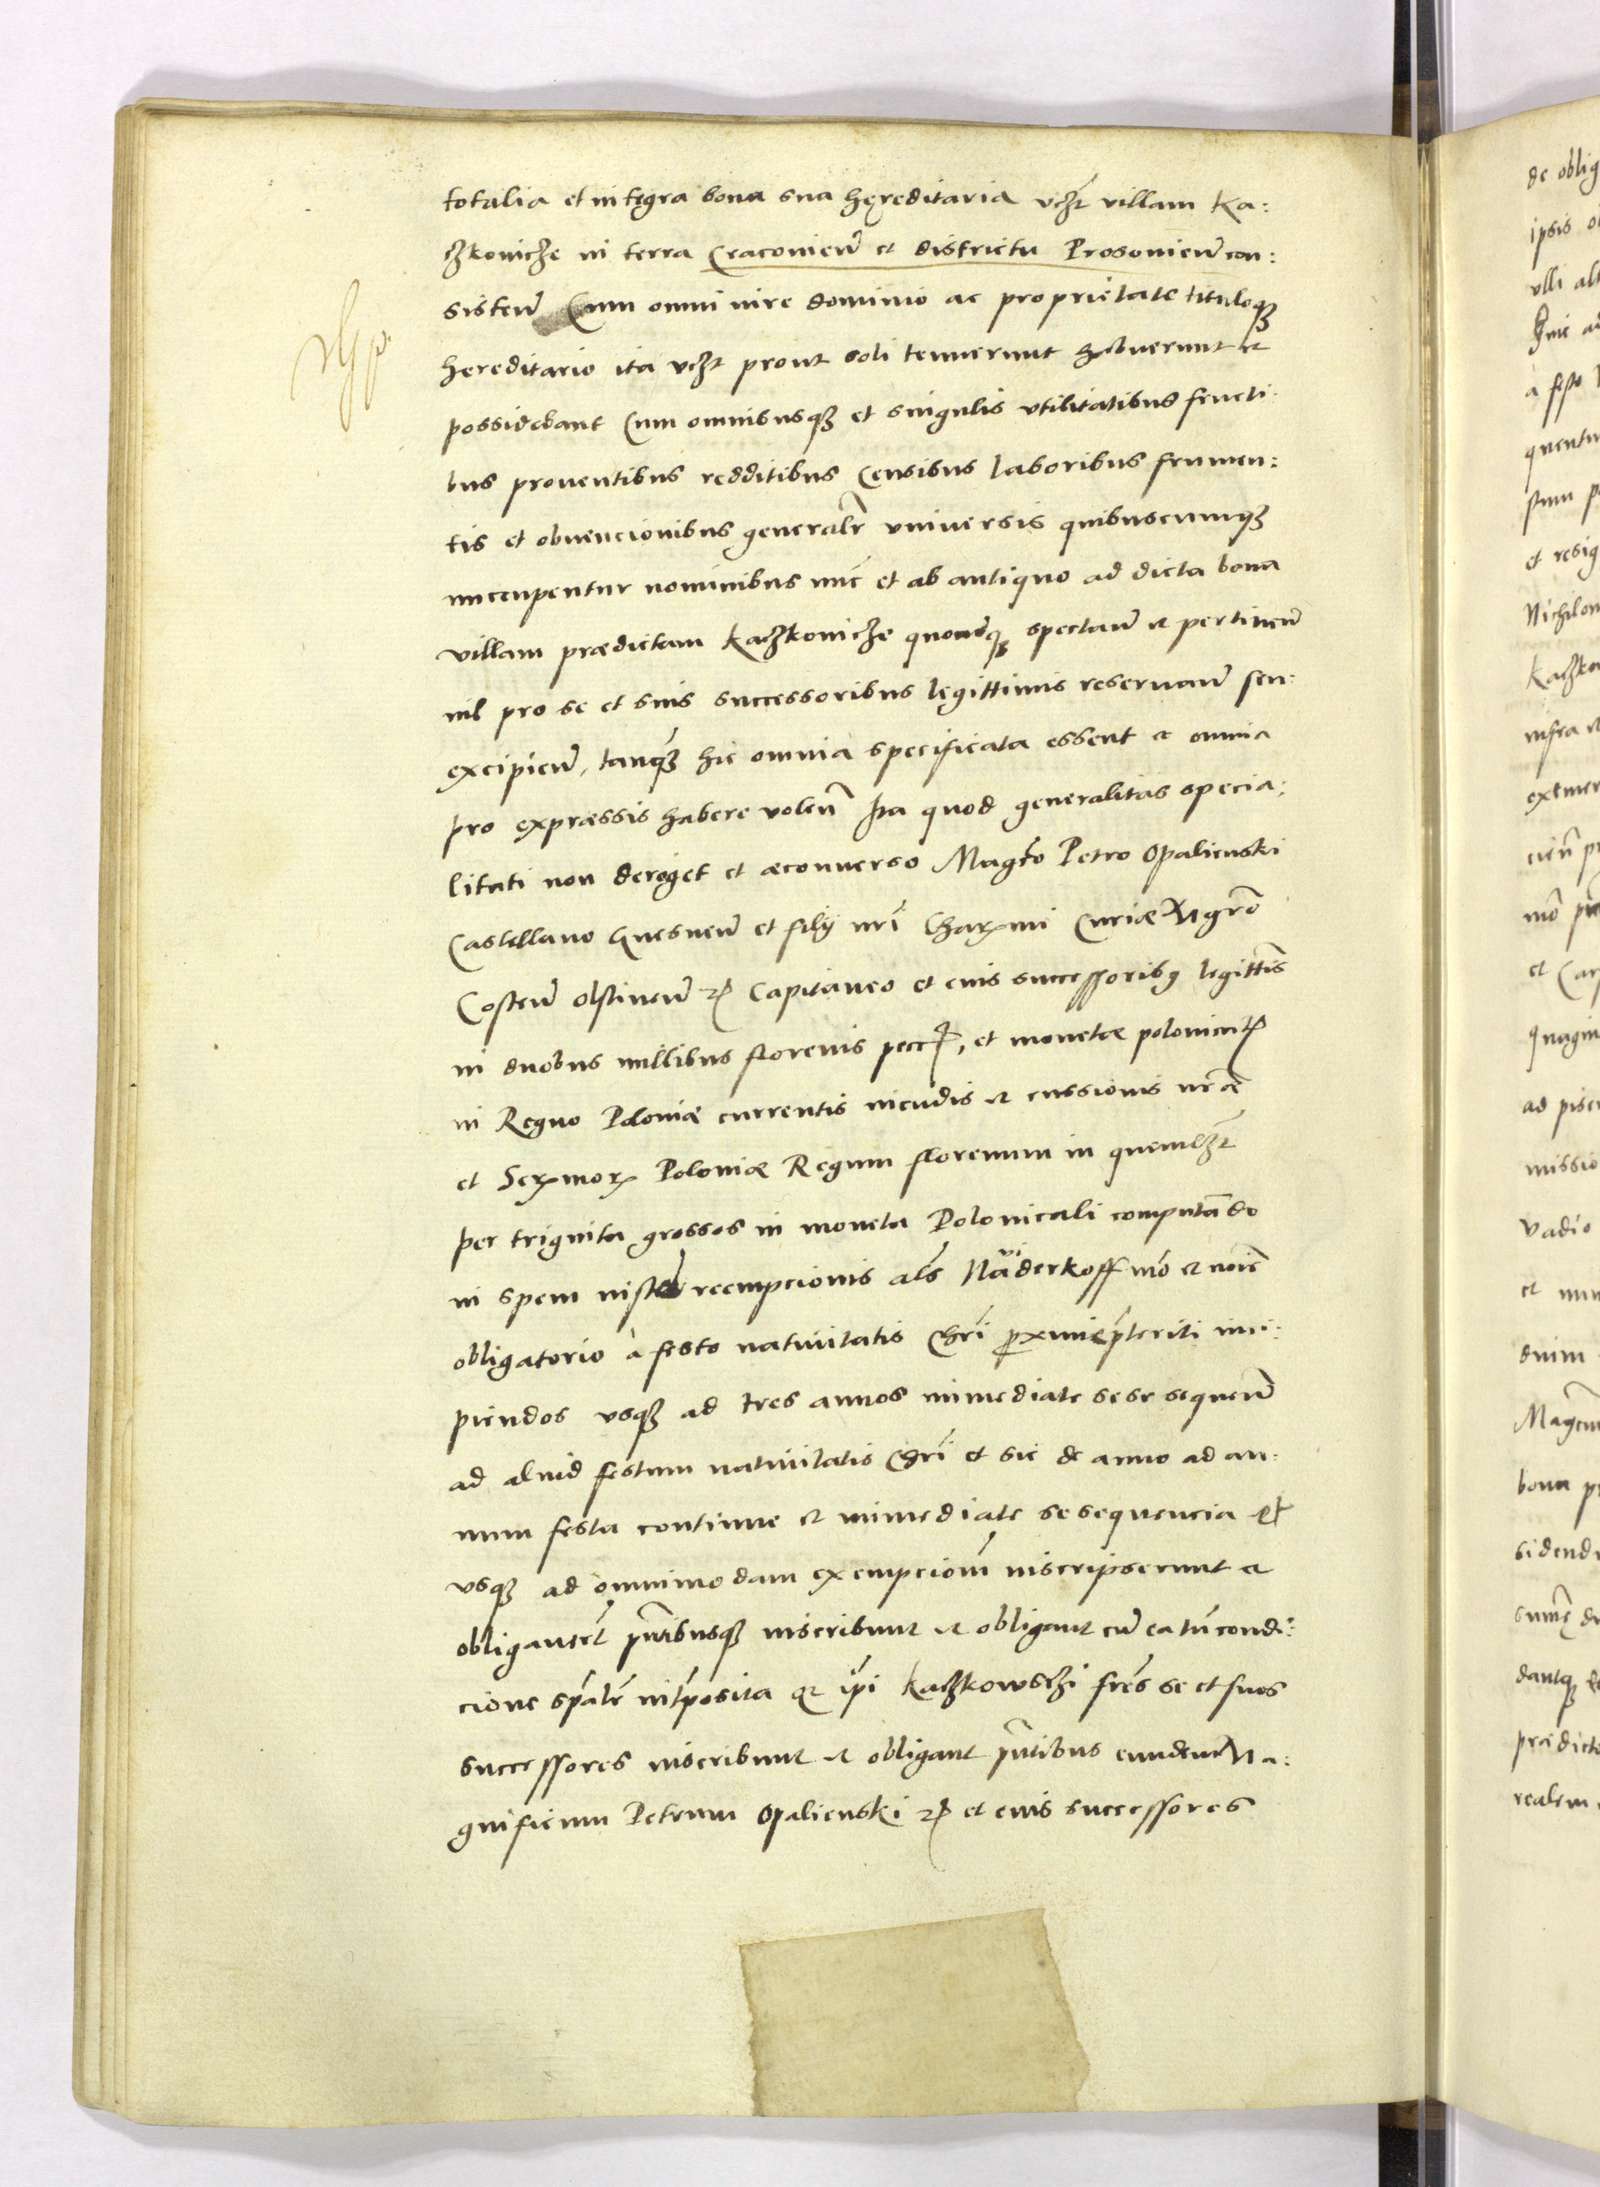 totalia et integra bona sua hęreditaria vcꝫt villam Ka:
cꝫkovicꝫe in terra Cracovien̄ et districtu Prosovien̄ con:
sisten̄ Cum omni iure dominio ac proprietate tituloqꝫ
hereditario ita vcꝫt prout soli tenuerunt habuerunt et
possidebant Cum omnibusqꝫ et singulis vtilitatibus fructi:
bus proventibus redditibus Censibus laboribus frumen:
tis et obvencionibus generalr̄ vniversis quibuscumqꝫ
nuccupentur nominibus nūc et ab antiquo ad dicta bona
villam prædictam Kaczkovicze spectan̄ et pertinen̄
nil pro se et suis successoribus legittimis reservan̄ seu
excipien̄, tanqꝫ hic omnia specificata essent et omnia
pro expræssis habere volen̄ Ita quod generalitas specia:
litati non deroget et æconverso Magco Petro Opalienski
Castellano Gnesnen̄ et filij nr̄i Charmi Curiæ Mgro
Costen̄ Olstinen̄ etc Capitaneo et eius successoribꝫ legittis
in duobus millibus florenis pecc, et monetæ polonicæ
in Regno Poloniæ currentis incudis et cussionis nr̄æ
et Sermor Poloniæ Regum florenum in quemlꝫt
per triginta grossos in moneta Polonicali computādo
in spem reempcionis als Naviderkoff mō et noīe
obligatorio à festo nativitatis Chrī proximepr̄teriti inci:
piendos vsqꝫ ad tres annos immediate se se sequen̄
ad aliud festum nativitatis Chrī et sic de anno ad an:
num festa continue et immediate se sequencia et
vsqꝫ ad omnimodam exempcionē inscripserunt et
obligaver̄t pn̄tibusqꝫ inscribunt et obligant cū ea tn̄ condi:
cione spālr̄ intr̄posita qz ipi Kaczkowsczi frēs se et suos
successores inscribunt et obligant pn̄tibus eundem Ma:
gnificum Petrum Opalienski etc et eius successores